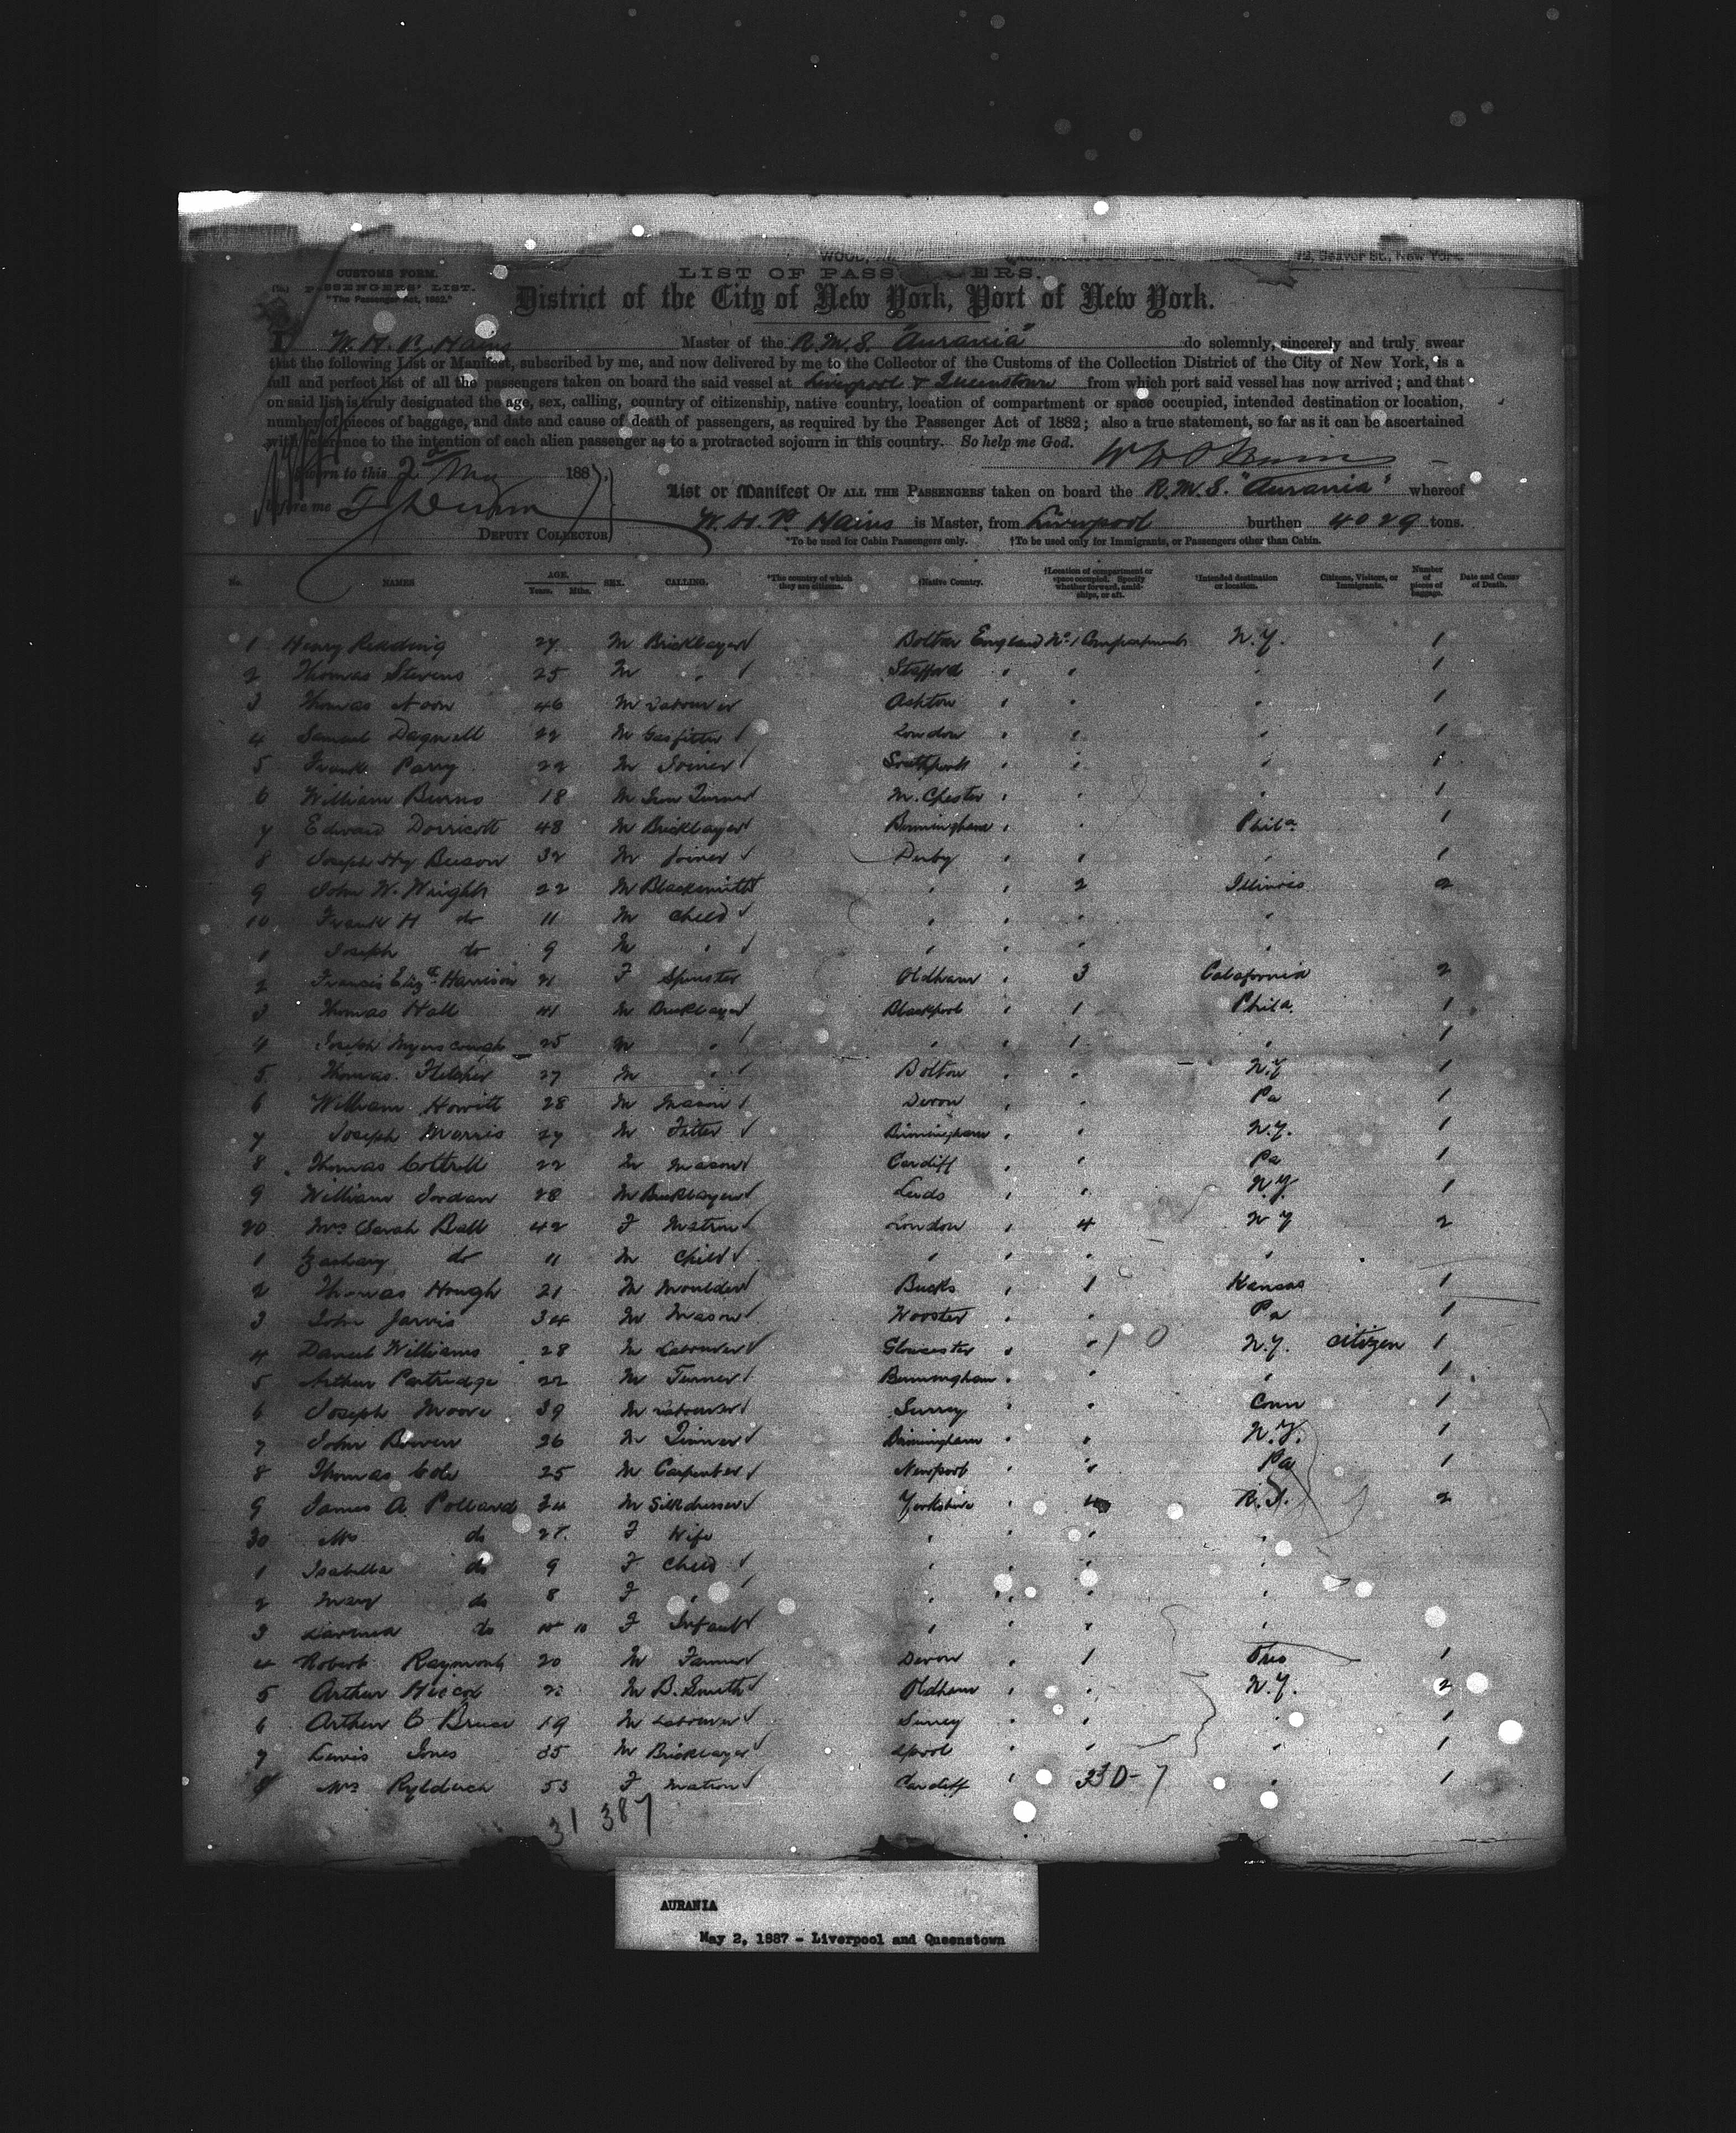 72, Beaver St., New York.
CUSTOMS FORM. LIST OF PASS ERS.
PASSENGERS' LIST.
"The Passenger Act, 1882."
District of the City of New York, Port of New York.
I, W. H. P. Hains Master of the R.M.S. "Aurania" do solemnly, sincerely and truly swear
that the following List or Manifest, subscribed by me, and now delivered by me to the Collector of the Customs of the Collection District of the City of New York, is a
full and perfect list of all the passengers taken on board the said vessel at Liverpool & Queenstown from which port said vessel has now arrived; and that
on said list is truly designated the age, sex, calling, country of citizenship, native country, location of compartment or space occupied, intended destination or location,
number of pieces of baggage, and date and cause of death of passengers, as required by the Passenger Act of 1882; also a true statement, so far as it can be ascertained
with reference to the intention of each alien passenger as to a protracted sojourn in this country. So help me God.
Sworn to this 2d May 1887
List or Manifest OF ALL THE PASSENGERS taken on board the R.M.S. "Aurania" whereof
before me
W. H. P. Hains is Master, from Liverpool burthen 4029 tons.
DEPUTY COLLECTOR
*To be used for Cabin Passengers only. †To be used only for Immigrants, or Passengers other than Cabin.
No. NAMES AGE. Years. Mths. SEX. CALLING. *The country of which they are citizens. †Native Country. †Location of compartment or space occupied. Specify whether forward, amidships, or aft. †Intended destination or location. Citizens, Visitors, or Immigrants. Number of pieces of baggage. Date and Cause of Death.
1 Henry Redding 27 M Bricklayer Bolton England No. 1 Compartment N.Y. 1
2 Thomas Stevens 25 M " Stafford " " " 1
3 Thomas Noon 46 M Labourer Ashton " " " 1
4 Samuel Dagnall 22 M Gasfitter London " " " 1
5 Frank Parry 22 M Joiner Southport " " " 1
6 William Burns 18 M Iron Turner M.Chester " " " 1
7 Edward Dorricott 48 M Bricklayer Birmingham " " Phila 1
8 Joseph Hy Beeson 32 M Joiner Derby " " " 1
9 John W. Wright 22 M Blacksmith " " 2 Illinois 2
10 Frank H do 11 M Child " " " "
1 Joseph do 9 M " " " " "
2 Francis Eliz. Harrison 21 F Spinster Oldham " 3 Calafornia 2
3 Thomas Hall 41 M Bricklayer Blackpool " 1 Phila. 1
4 Joseph Myerscough 25 M " " " 1 " 1
5 Thomas Fletcher 27 M " Bolton " " N.Y 1
6 William Howitt 28 M Mason Devon " " Pa 1
7 Joseph Morris 27 M Fitter Birmingham " " N.Y. 1
8 Thomas Cottrell 22 M Mason Cardiff " " Pa 1
9 William Jordan 28 M Bricklayer Leeds " " N.Y. 1
20 Mrs Sarah Ball 42 F Matron London " 4 N Y 2
1 Zachary do 11 M Child " " " "
2 Thomas Hough 21 M Moulder Bucks " 1 Kansas 1
3 John Jarvis 34 M Mason Wooster " Pa 1
4 Daniel Williams 28 M Labourer Gloucester " " N.Y. citizen 1
5 Arthur Partridge 22 M Turner Birmingham " " " 1
6 Joseph Moore 39 M Labourer Surrey " " Conn 1
7 John Bowen 26 M Birmingham " " N.Y. 1
8 Thomas Cole 25 M Carpenter Newport " " Pa 1
9 James A. Pollard 34 M Silkdresser Yorkshire " R.I. 2
30 Mrs do F Wife " " " "
1 Isabella do 9 F Child " " " "
2 Mary do 8 F " " " " "
3 do 10 F Infant " " "
4 Robert Raymont 20 M Farmer Devon " 1 1
5 Arthur M B. Smith Oldham " " N.Y. 2
6 Arthur C Bruce 19 M Labourer Surrey " " " 1
7 Lewis Jones 35 M Bricklayer Lpool " " " 1
8 Mrs Rylderch 53 F Matron Cardiff " " 1
31 387
AURANIA
May 2, 1887 - Liverpool and Queenstown